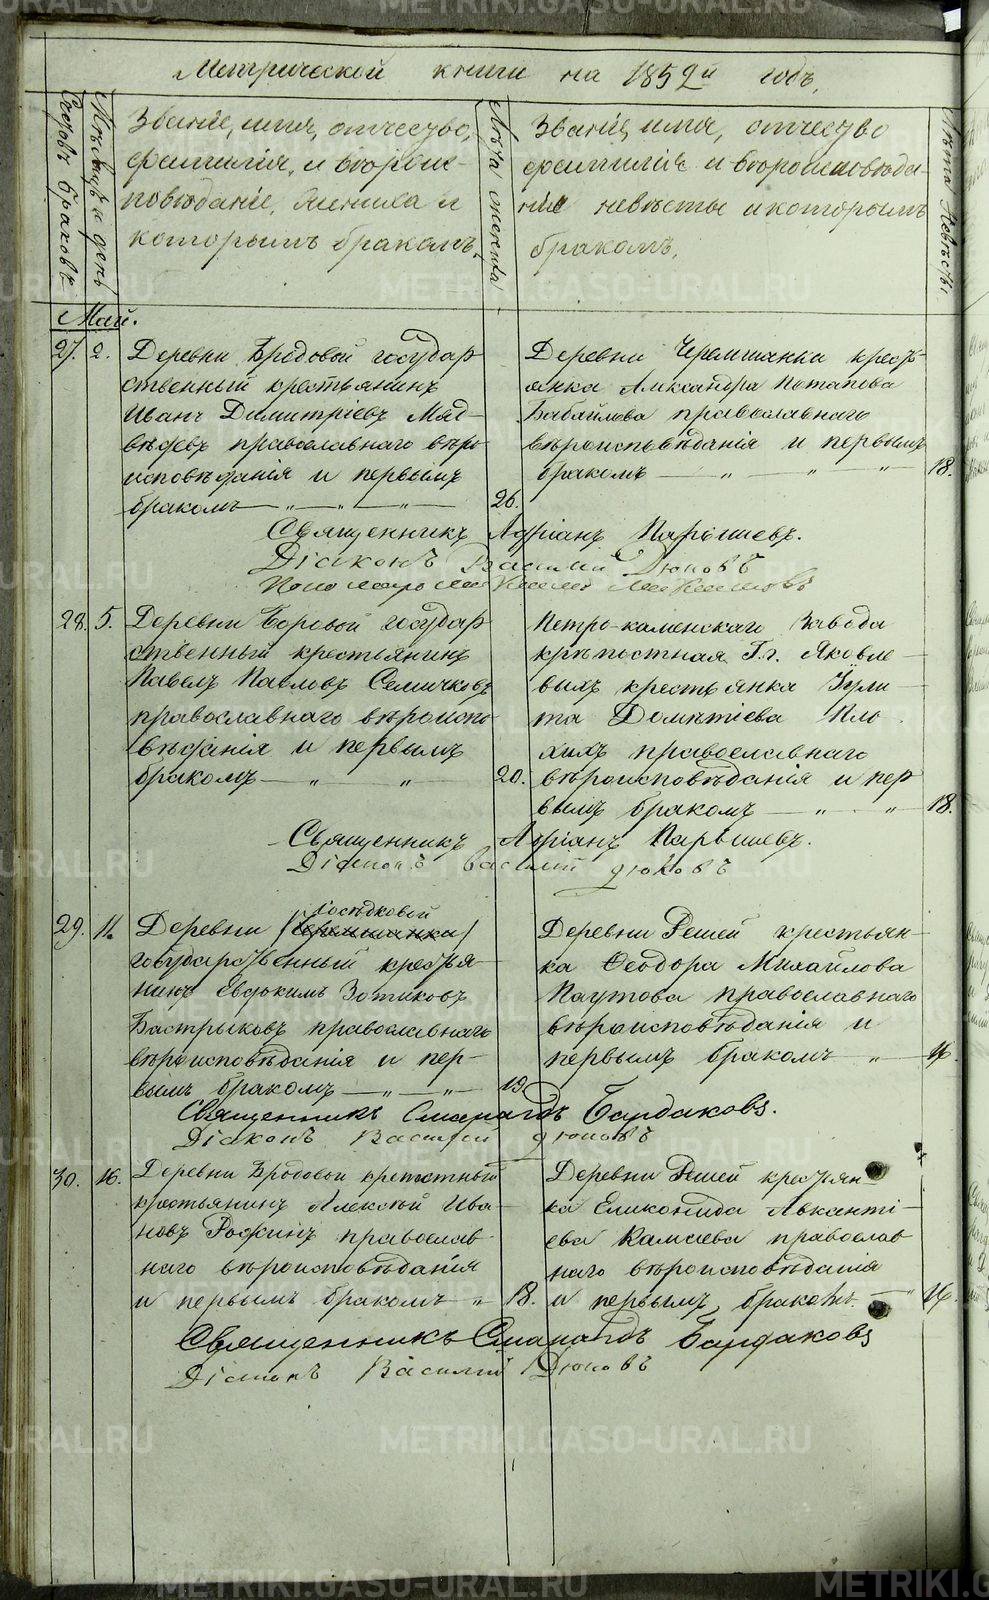 Метрической книги на 1852й годъ.
Счетъ браковъ
Мѣсяцъ и день
Званіе, имя, отчество,
фамилія, и вѣроис-
повѣданіе, жениха и
которымъ бракомъ.
Лѣта жениха
Званіе, имя, отчество
фамилія и вѣроисповѣда-
ніе невѣсты и которымъ
бракомъ.
Лѣта невѣсты.
Май.
27. 2. Деревни Бродовой государ
ственный крестьянинъ
Иванъ Димитріевъ Мяд-
вѣдевъ православнаго вѣро
исповѣданія и первымъ
бракомъ — „ — „ — 26.
Деревни Черемшанки кресть-
янка Александра Потапова
Бабайлова православнаго
вѣроисповѣданія и первымъ
бракомъ — „ — „ — „ 18.
Священникъ Адріанъ Парышевъ.
Діаконъ Василий Дюковъ
28. 5. Деревни Боровой государ
ственный крестьянинъ
Павелъ Павловъ Семичковъ
православнаго вѣроиспо
вѣданія и первымъ
бракомъ — „ „ — 20.
Петро-каменскаго завода
крѣпостная Г.г. Яковле-
выхъ крестьянка Улли-
та Дометіева Иль
ихъ православнаго
вѣроисповѣданія и пер
вымъ бракомъ — „ — „ — 18.
Священникъ Адріанъ Парышевъ.
Діаконъ Василий Дюковъ
Госьковой
29. 11. Деревни (Черемшанки)
государственный крестья-
нинъ Евдокимъ Зотиковъ
Бастрыковъ православнаго
вѣроисповѣданія и пер-
вымъ бракомъ — „ — „ — 19
Деревни Решей крестьян-
ка Ѳеодора Михайлова
Паутова православнаго
вѣроисповѣданія и
первымъ бракомъ — „ — 16.
Священникъ Смарагдъ Бардаковъ.
Діаконъ Василий Дюковъ
30. 16. Деревни Бродовой крепостный
крестьянинъ Алексѣй Ива
новъ Рожинъ православ-
наго вѣроисповѣданія
и первымъ бракомъ „ 18.
Деревни Решей крестьян-
ка Еликонида Авксенті-
ева Камаева православ
наго вѣроисповѣданія
и первымъ бракомъ — „ 16.
Священникъ Смарагдъ Бардаковъ
Діаконъ Василий Дюковъ
METRIKI.GASO-URAL.RU